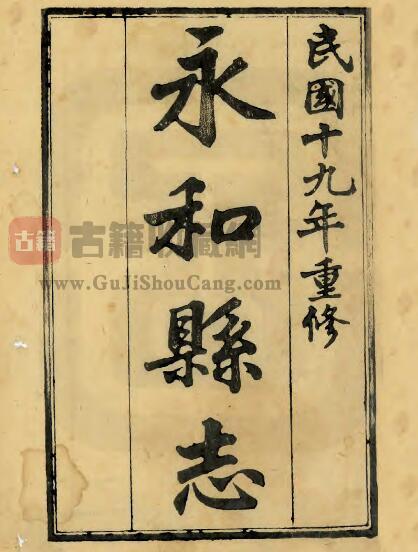 民國十九年重修
永和縣志
古籍 古籍收藏網
www.GuJiShouCang.com